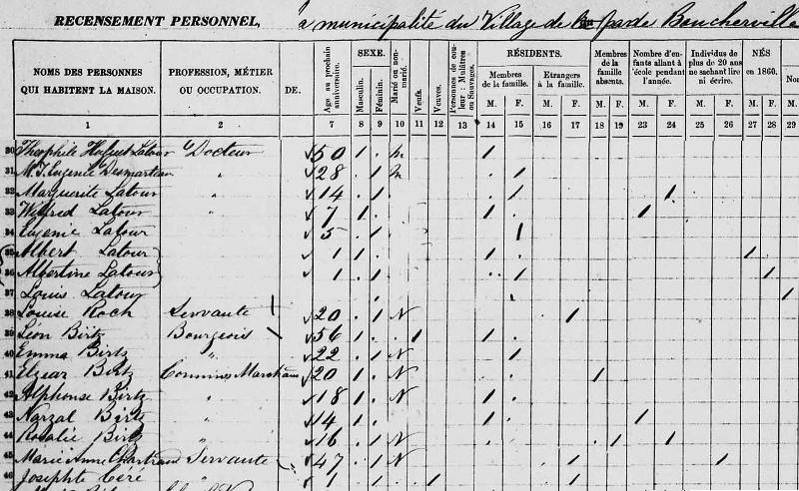 RECENSEMENT PERSONNEL, a municipalité du Village de parde Boucherville
NOMS DES PERSONNES QUI HABITENT LA MAISON.
PROFESSION, MÉTIER OU OCCUPATION.
DE.
Age au prochain anniversaire.
SEXE.
Masculin.
Féminin.
Marié ou non-marié.
Veufs.
Veuves.
Personnes de couleur : Mulâtres ou Sauvages.
RÉSIDENTS.
Membres de la famille.
M. F.
Etrangers à la famille.
M. F.
Membres de la famille absents.
M. F.
Nombre d'enfants allant à l'école pendant l'année.
M. F.
Individus de plus de 20 ans ne sachant lire ni écrire.
M. F.
NÉS en 1860.
M. F.
1 2 7 8 9 10 11 12 13 14 15 16 17 18 19 23 24 25 26 27 28 29
30 Theophile Huguet Latour Docteur 50 1 M 1
31 M. J. Eugenie Desmarteau " 28 1 M 1
32 Marguerite Latour " 14 1 1 1
33 Wilfred Latour " 7 1 1 1
34 Eugenie Latour 5 1 1
35 Albert Latour 1 1 1 1
36 Albertine Latour 1 1 1 1
37 Louis Latour 1
38 Louise Roch Servante 20 1 N 1
39 Léon Birtz Bourgeois 56 1 1 1
40 Emma Birtz " 22 1 N 1
41 Elzear Birtz Commis Marchand 20 1 N 1
42 Alphonse Birtz " 18 1 N 1
43 Narzal Birtz " 14 1 1 1
44 Rosalie Birtz " 16 1 N 1 1
45 Marie Ann Chartrand Servante 47 1 N 1 1
46 Josephte Céré " 1 1 1